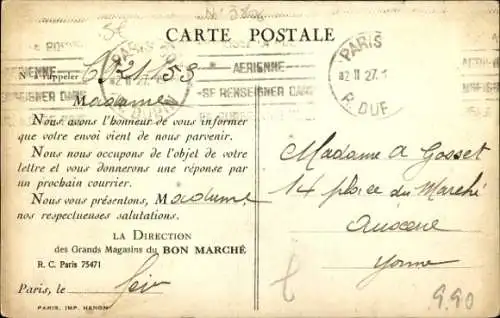 CARTE POSTALE
AERIENNE
SE RENSEIGNER DANS
PARIS
2 II 27
R. DUF
N° à rappeler
Madame
Nous avons l'honneur de vous informer
que votre envoi vient de nous parvenir.
Nous nous occupons de l'objet de votre
lettre et vous donnerons une réponse par
un prochain courrier.
Nous vous présentons, Madame
nos respectueuses salutations.
LA DIRECTION
des Grands Magasins du BON MARCHÉ
R. C. Paris 75471
Paris, le
PARIS, IMP. HENON
Madame A Gosset
14 place du Marché
Auxerre
Yonne
9.90